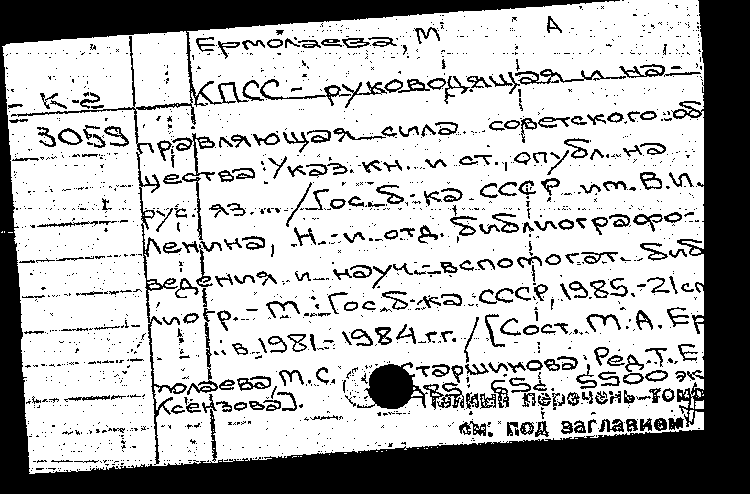 Ермолаева, М А
К-2 КПСС - руководящая и на-
3059 правляющая сила советского об
щества: Указ. кн. и ст., опубл. на
рус. яз ... / Гос. б-ка СССР им. В.И.
Ленина, Н.-и. отд. библиографо-
ведения и науч.-вспомогат. биб
лиогр. - М.: Гос. б-ка СССР, 1985. - 21 см
... в 1981-1984 г.г. / [Сост. М. А. Ер
молаева, М. С. Старшинова; Ред. Т. Е.
Ксензова]. 65с. 5500 эк
перечень томо
см. под заглавием